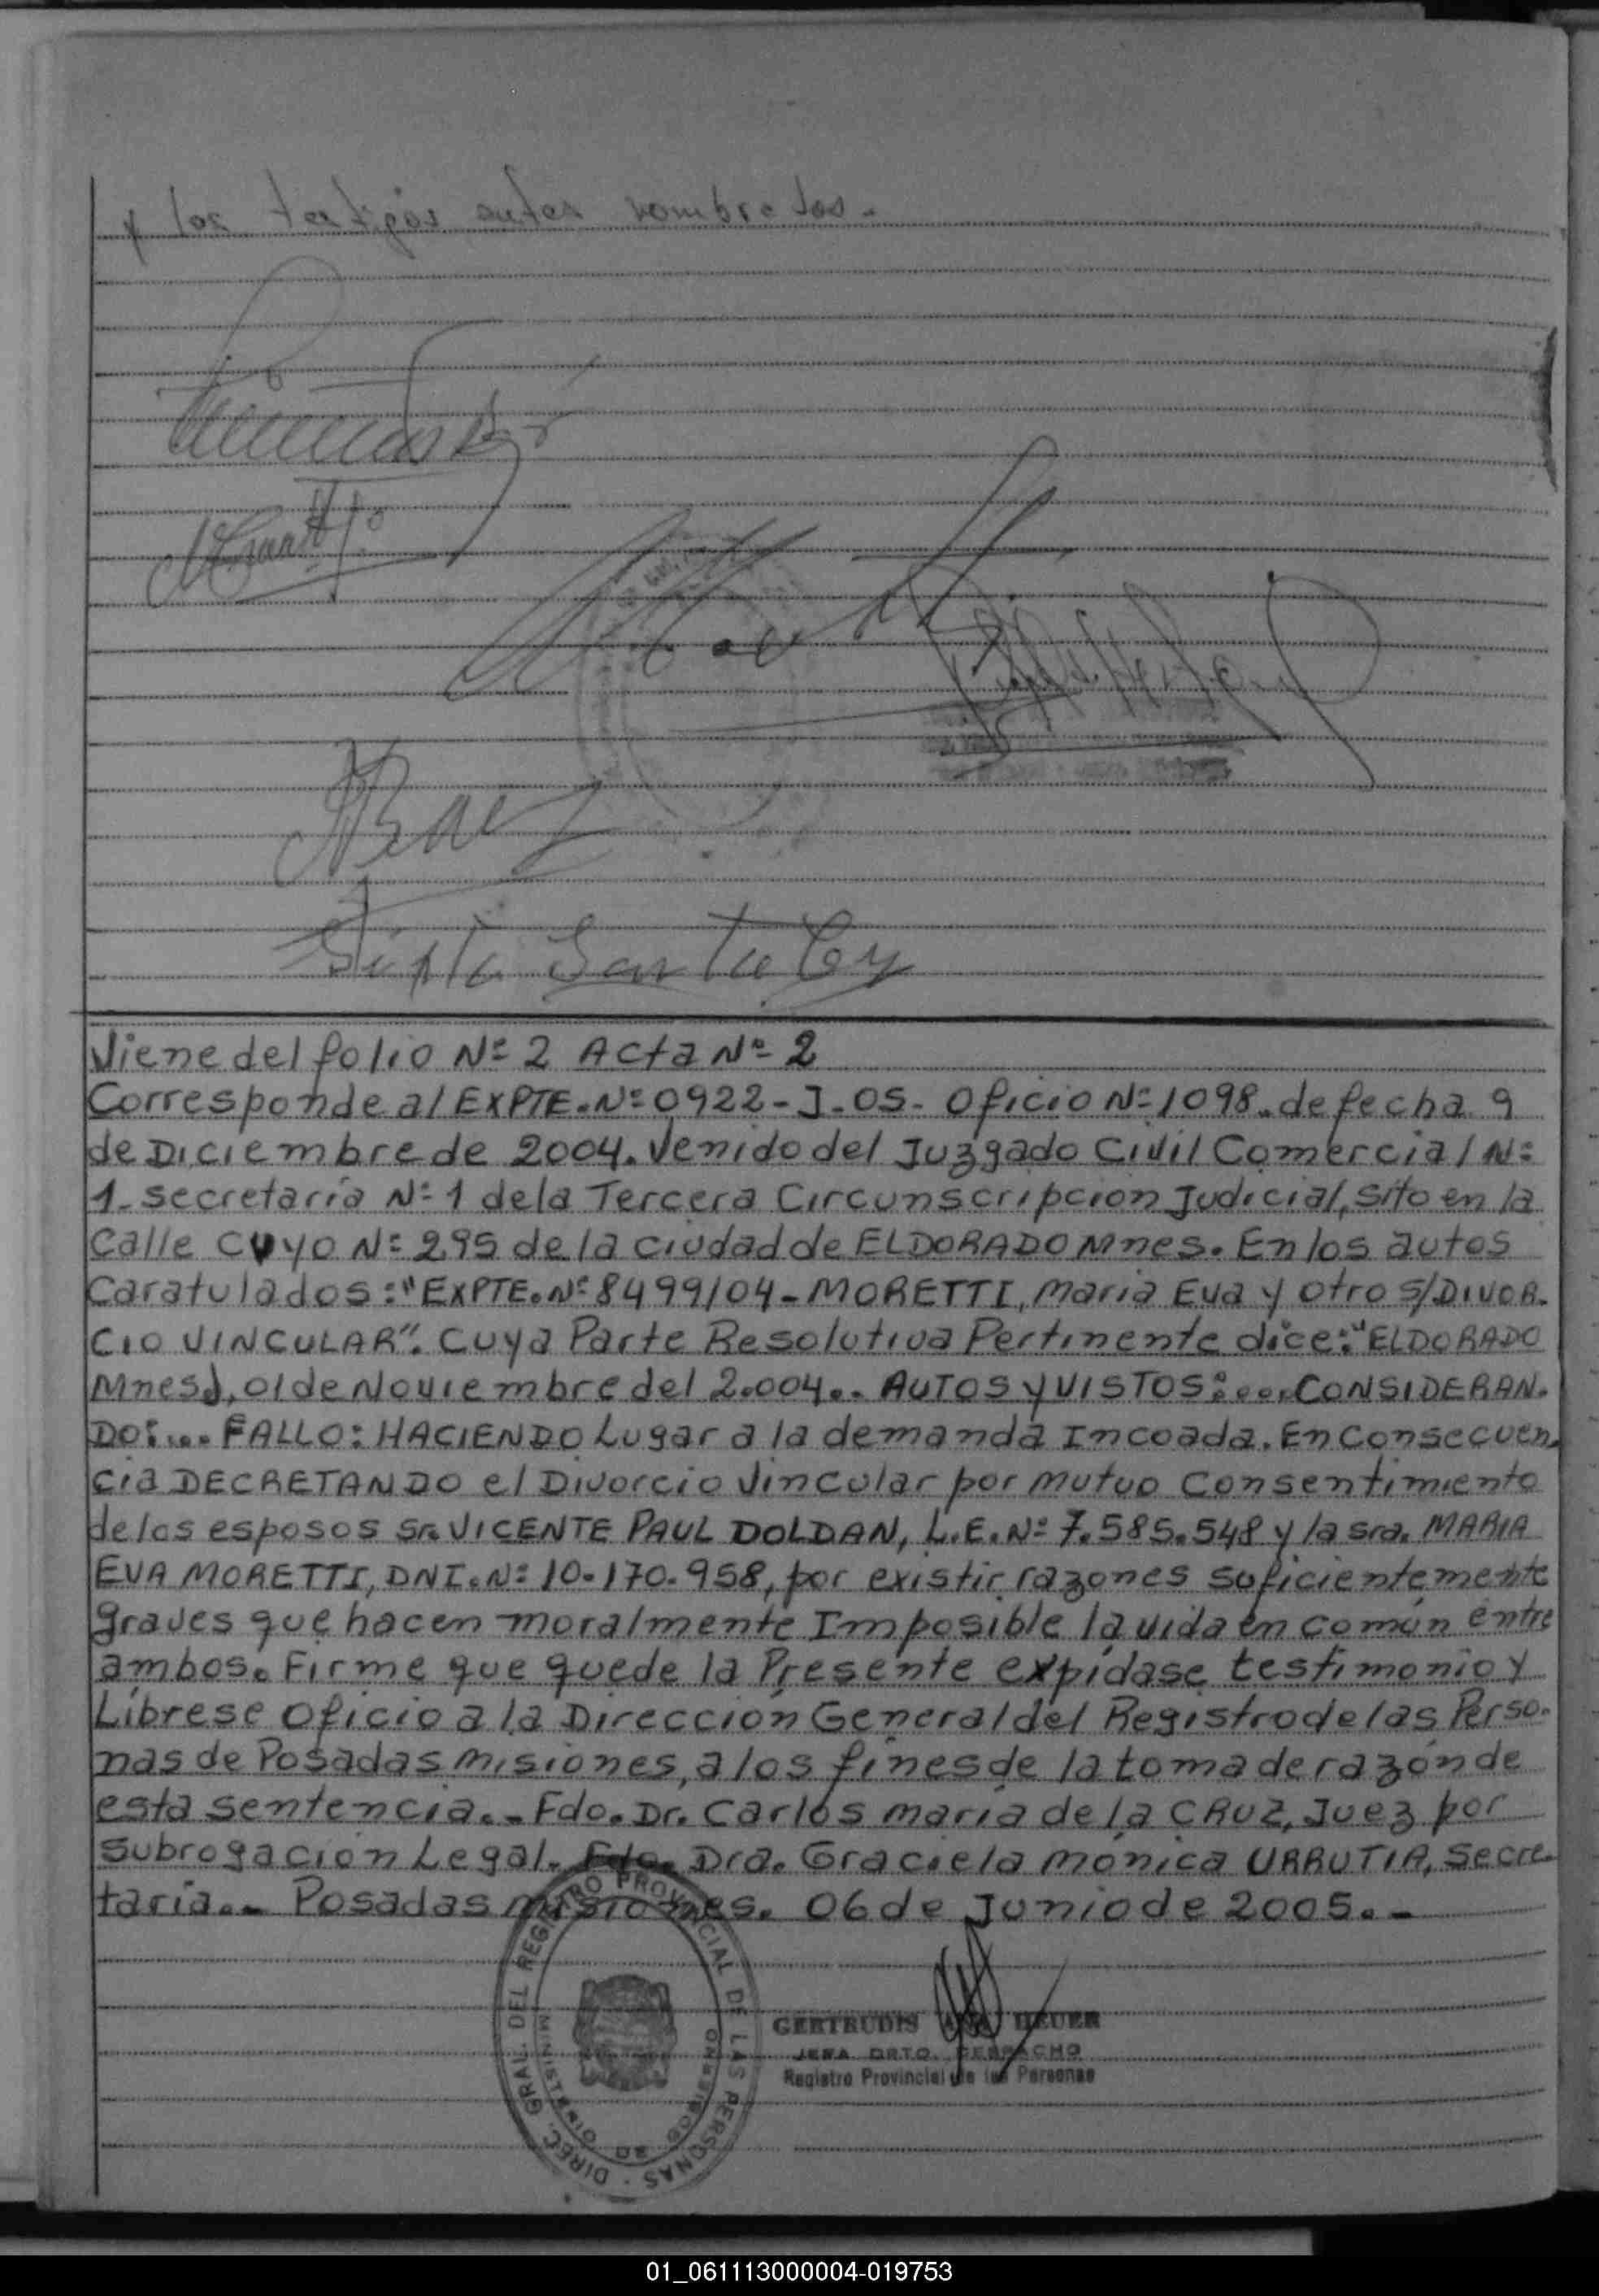 y los testigos antes nombrados.-
Santa Cruz
Viene del folio Nº 2 Acta Nº 2
Corresponde al EXPTE. Nº 0922-J-05- Oficio Nº 1098. de fecha 9
de Diciembre de 2004. Venido del Juzgado Civil Comercial Nº
1- secretaría Nº 1 de la Tercera Circunscripción Judicial, sito en la
Calle CUYO Nº 295 de la ciudad de ELDORADO Mnes. En los autos
Caratulados: "EXPTE. Nº 8499/04- MORETTI, María Eva y otro s/DIVOR-
CIO VINCULAR". Cuya Parte Resolutiva Pertinente dice: "ELDORADO
Mnes), 01 de Noviembre del 2.004.- AUTOS y VISTOS:... CONSIDERAN-
DO:... FALLO: HACIENDO Lugar a la demanda Incoada. En Consecuen-
cia DECRETANDO el Divorcio Vincular por mutuo Consentimiento
de los esposos Sr. VICENTE PAUL DOLDAN, L.E. Nº 7.585.548 y la sra. MARIA
EVA MORETTI, DNI. Nº 10.170.958, por existir razones suficientemente
graves que hacen moralmente Imposible la vida en común entre
ambos. Firme que quede la Presente expídase testimonio y
Líbrese Oficio a la Dirección General del Registro de las Perso-
nas de Posadas misiones, a los fines de la toma de razón de
esta sentencia.- Fdo. Dr. Carlos maría de la CRUZ, Juez por
Subrogación Legal. Fdo. Dra. Graciela mónica URRUTIA, Secre-
taria.- Posadas misiones. 06 de Junio de 2005.-
DIREC. GRAL. DEL REGISTRO PROVINCIAL DE LAS PERSONAS
MINISTERIO DE GOBIERNO
GERTRUDIS HEUER
JEFA DPTO. DESPACHO
Registro Provincial de las Personas
01_061113000004-019753